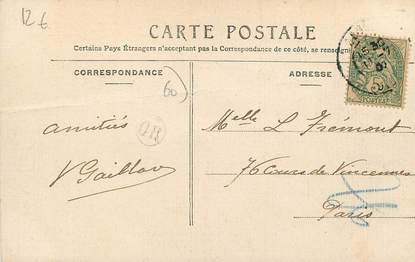 12 €
CARTE POSTALE
Certains Pays Étrangers n'acceptent pas la Correspondance de ce côté, se renseigner
CORRESPONDANCE
ADRESSE
60
amitiés
OR
Melle L Frémont
76 Cours de Vincennes
Paris